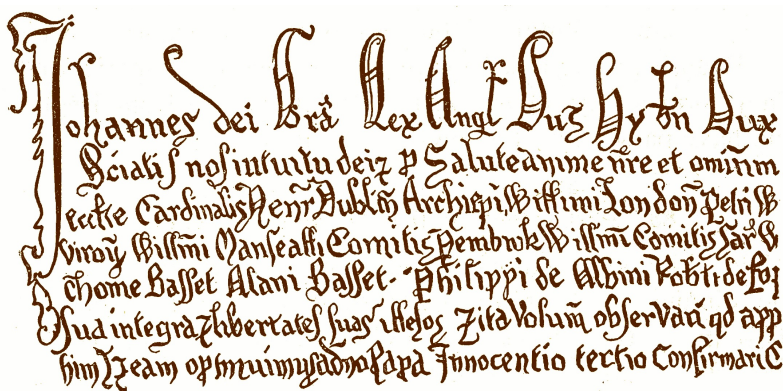 Johannes dei Grã Rex Angl Duz Hybn Dux
Sciatis nos intuitu dei ⁊ p Salute anime nr̃e et omnium
eccƚie Cardinalis Henr̃ Dublin̄ Archiep̄i, Wiƚƚmi London̄ Petri W
viroȝ Wiƚƚmi Marescaƚƚi Comitis Pembrok Wiƚƚmi Comitis Sar̃ W
Thome Basset Alani Basset. Philippi de Albini Rob̄ti de
Sua integra ⁊ libertates suas illesas ⁊ ita Volum̃ observari qd app
him ⁊ eam optinuimus a dño Papa Innocentio tertio Confirmari